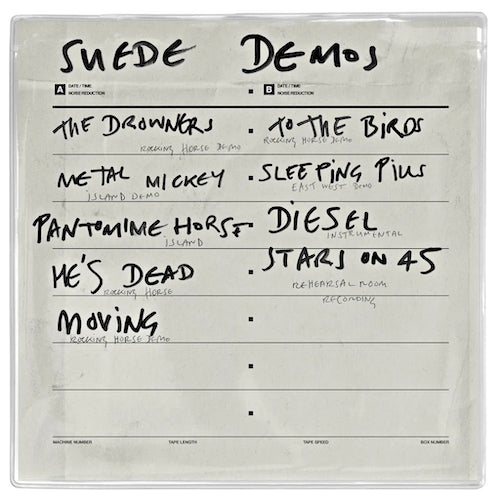 SUEDE DEMOS
A DATE / TIME
NOISE REDUCTION
B DATE / TIME
NOISE REDUCTION
THE DROWNERS
ROCKING HORSE DEMO
METAL MICKEY
ISLAND DEMO
PANTOMIME HORSE
ISLAND
HE'S DEAD
ROCKING HORSE
MOVING
ROCKING HORSE DEMO
TO THE BIRDS
ROCKING HORSE DEMO
SLEEPING PILLS
EAST WEST DEMO
DIESEL
INSTRUMENTAL
STARS ON 45
REHEARSAL ROOM
RECORDING
MACHINE NUMBER TAPE LENGTH TAPE SPEED BOX NUMBER